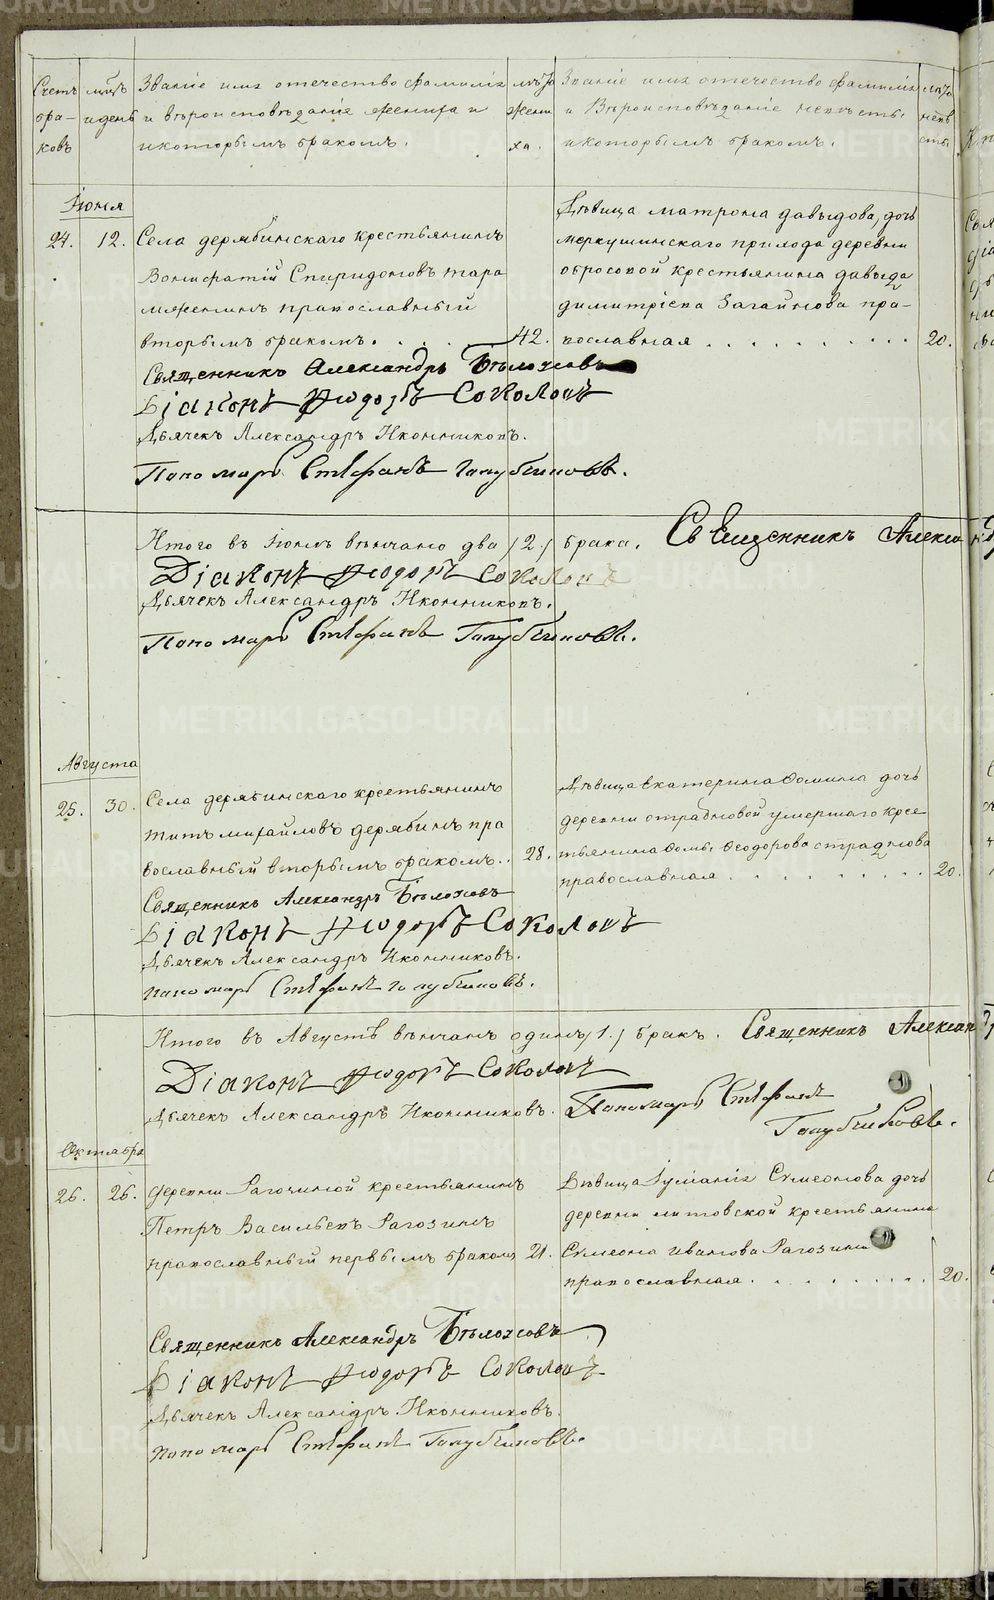 Счетъ бра- ковъ
мцъ и день
Званіе имя отечество фамилія
и вѣроисповѣданіе жениха и
икоторымъ бракомъ.
лѣта жени ха.
Званіе имя отечество фамилія
и Вѣроисповѣданіе невѣсты
икоторымъ бракомъ.
лѣта невѣ сты
Іюня
24. 12. Села дерябинскаго крестьянинъ
Вонифатій Спиридоновъ тара
мженинъ православный
вторымъ бракомъ. . . . . 42.
Дѣвица матрона давыдова, дочь
меркушинскаго прихода деревни
обросовой крестьянина давыда
димитріева Загайнова пра-
вославная . . . . . . . . . . 20.
Священникъ Александръ Бѣлоусовъ
Діаконъ Ѳиодоръ Соколовъ
Дьячекъ Александръ Иконниковъ.
Пономарь Стефанъ Голубчиковъ.
Итого въ Іюнѣ вѣнчано два /2./ брака. Священникъ Александръ
Діаконъ Ѳиодоръ Соколовъ
Дьячекъ Александръ Иконниковъ.
Пономарь Стефанъ Голубчиковъ.
Августа
25. 30. Села дерябинскаго крестьянинъ
Титъ михайловъ дерябинъ пра
вославный вторымъ бракомъ. . 28.
Дѣвица екатерина Фомина дочь
деревни отрадновой умершаго крес
тьянина Фомы Феодорова страднова
православная . . . . . . . . . 20.
Священникъ Александръ Бѣлоусовъ
Діаконъ Ѳиодоръ Соколовъ
Дьячекъ Александръ Иконниковъ.
Пономарь Стефанъ Голубчиковъ.
Итого въ Августѣ вѣнчанъ одинъ /1./ бракъ. Священникъ Александръ
Діаконъ Ѳиодоръ Соколовъ
Дьячекъ Александръ Иконниковъ. Пономарь Стефанъ
Голубчиковъ.
Октября
26. 26. деревни Рагозиной крестьянинъ
Петръ Васильевъ Рагозинъ
православный первымъ бракомъ 21.
Дѣвица Іуліанія Симеонова дочь
деревни литовской крестьянина
Симеона иванова Рагозина
православная . . . . . . . . . 20.
Священникъ Александръ Бѣлоусовъ
Діаконъ Ѳиодоръ Соколовъ
Дьячекъ Александръ Иконниковъ.
Пономарь Стефанъ Голубчиковъ.
METRIKI.GASO-URAL.RU